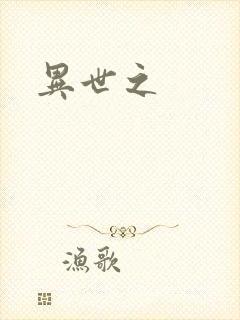 異世之
漁歌